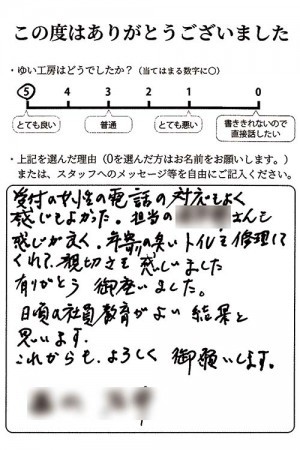 この度はありがとうございました
・ゆい工房はどうでしたか？（当てはまる数字に○）
5 4 3 2 1 0
とても良い 普通 とても悪い 書ききれないので直接話したい
・上記を選んだ理由（0を選んだ方はお名前をお願いします。）
または、スタッフへのメッセージ等を自由にご記入ください。
受付の女性の電話の対応もよく
感じてよかった。担当の さんも
感じが良く、年前の臭いトイレを修理して
くれて、親切さを感じました
有りがとう御座いました。
日頃の社員教育がよい結果と
思います。
これからも、よろしく御願いします。